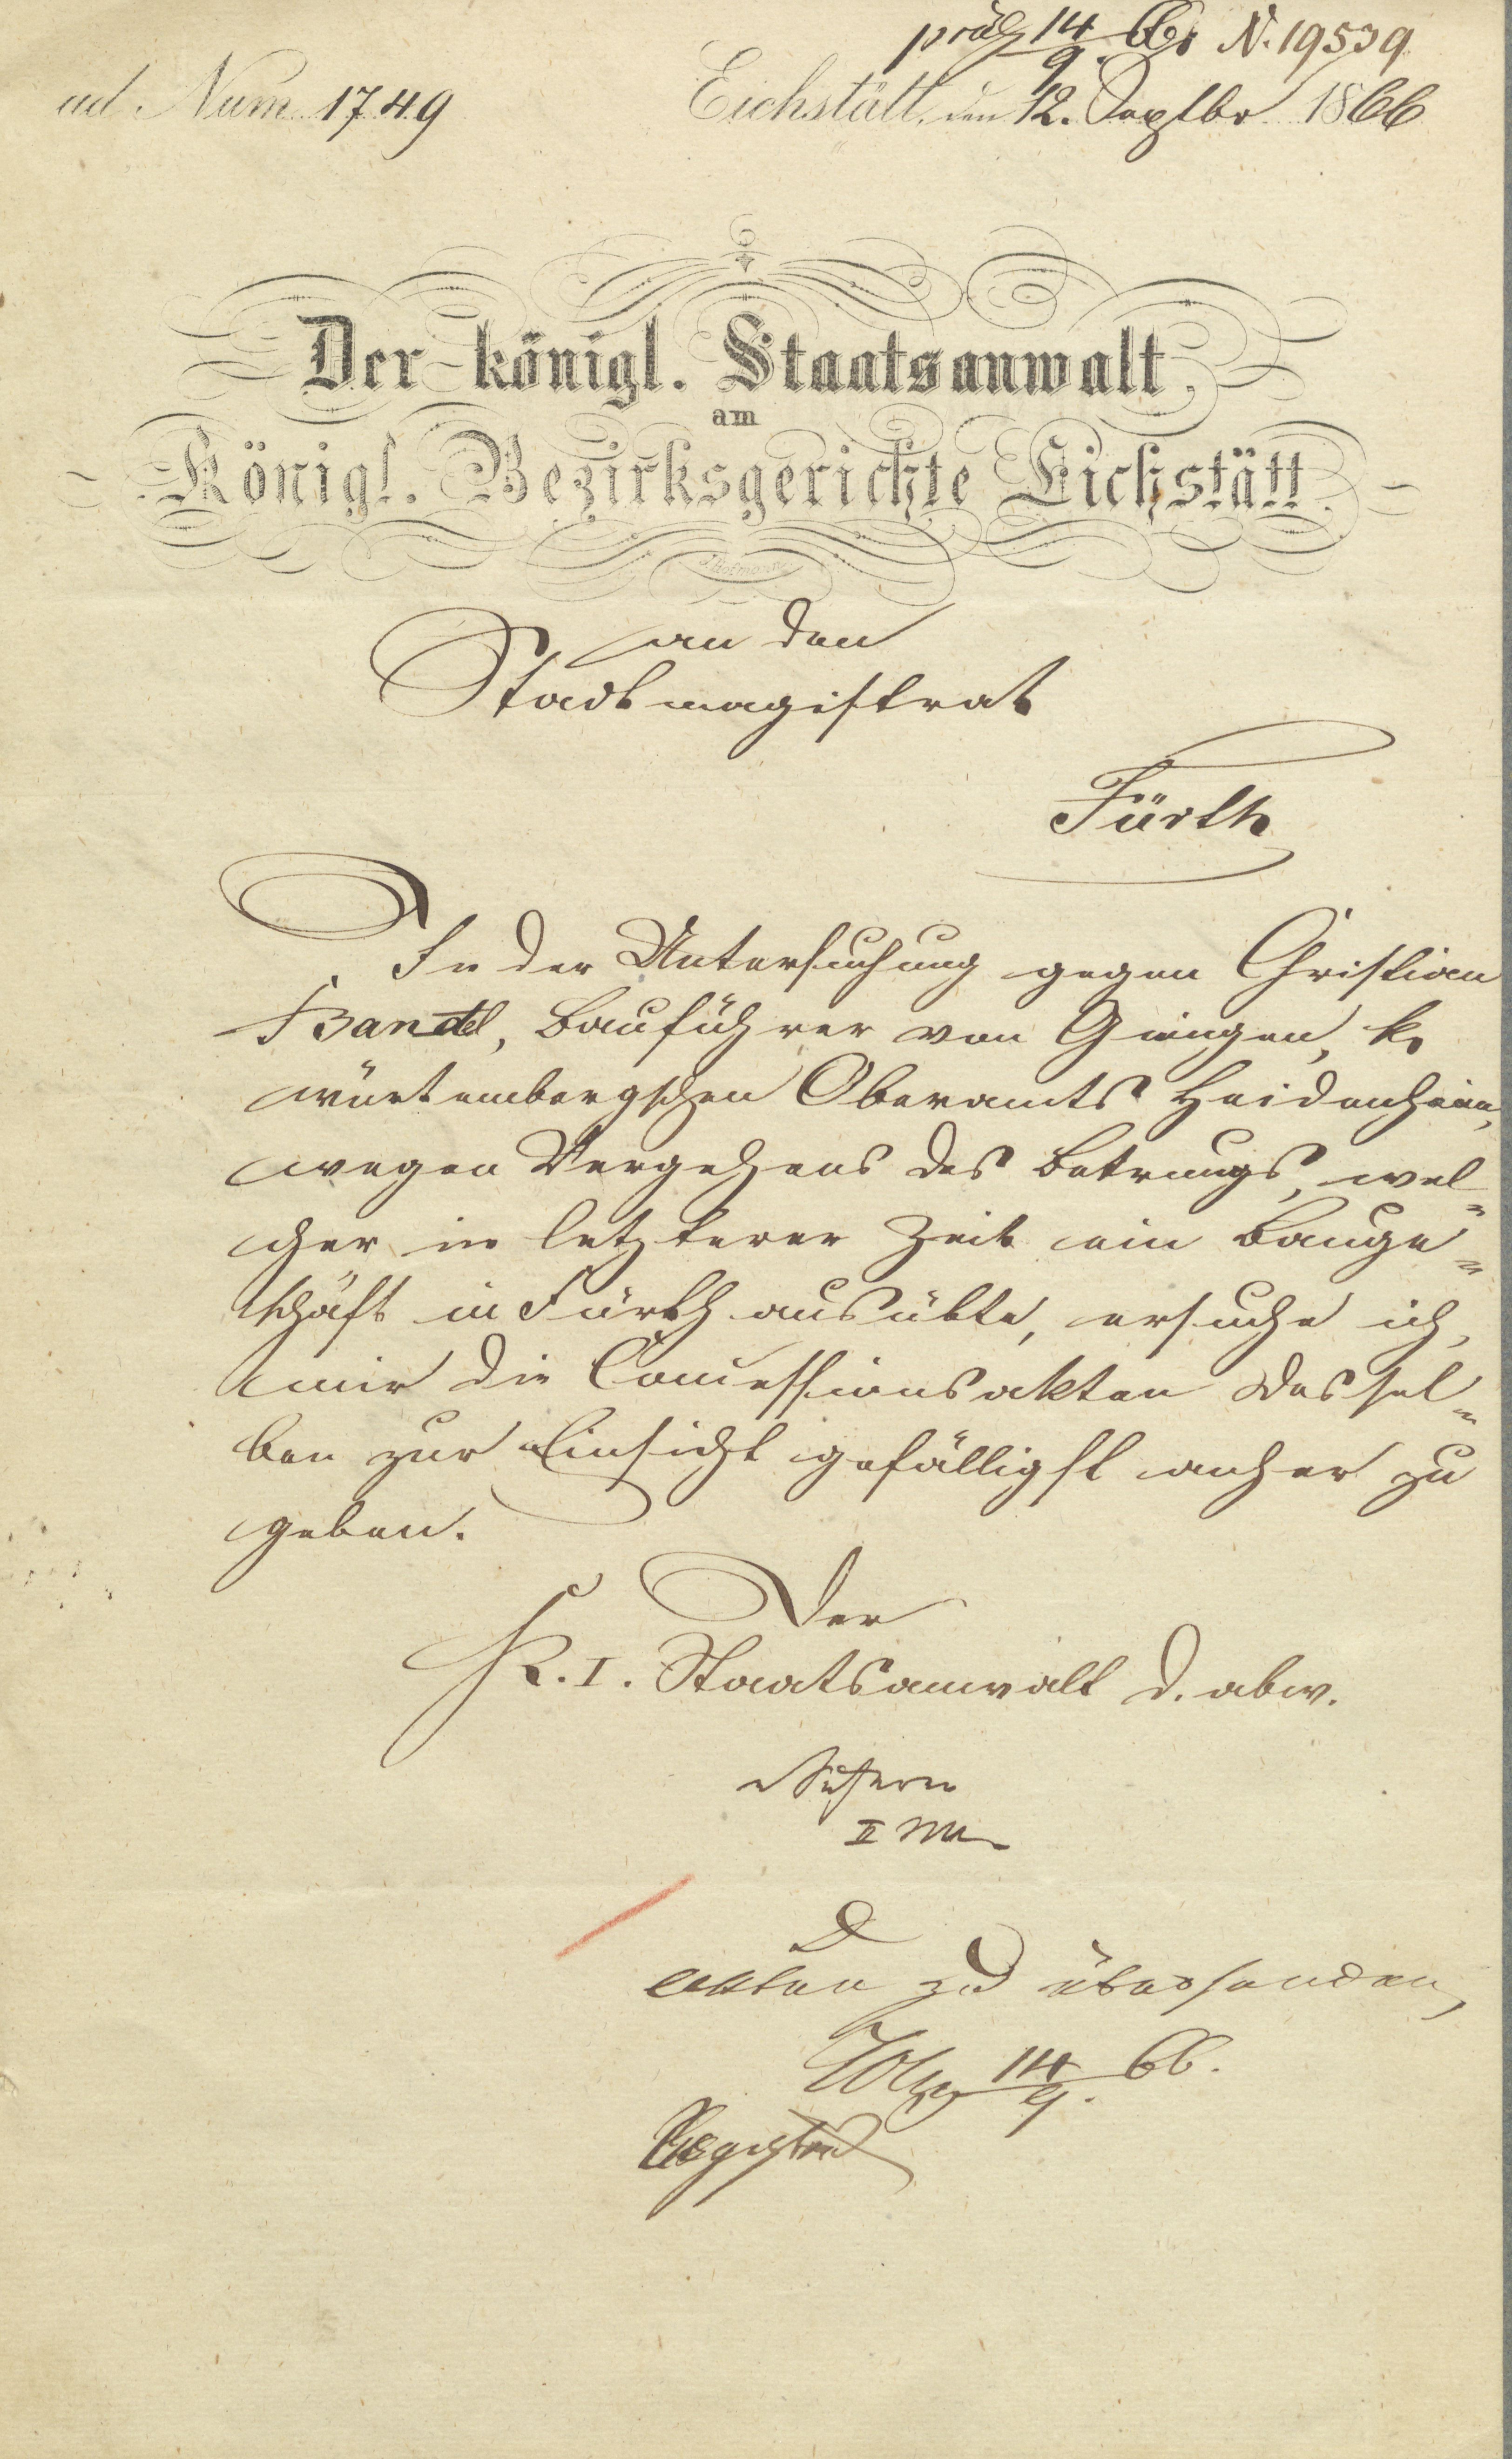 präs 14/9. 66. N. 19539
ad Num. 1749
Eichstätt, den 12. Septbr 1866
Der königl. Staatsanwalt
am
Königl. Bezirksgerichte Eichstätt.
an den
Stadtmagistrat
Fürth
In der Untersuchung gegen Christian
Bandel, Bauführer von Giengen, k.
würtembergschen Oberamts Heidenheim,
wegen Vergehens des Betrugs, wel-
cher in letzterer Zeit ein Bauge-
schäft in Fürth ausübte, ersuche ich,
mir die Concessionsakten dessel-
ben zur Einsicht gefälligst anher zu
geben.
Der
K. I. Staatsanwalt d. abw.
II
Akten zu übersenden,
14/9. 66.
Registrat